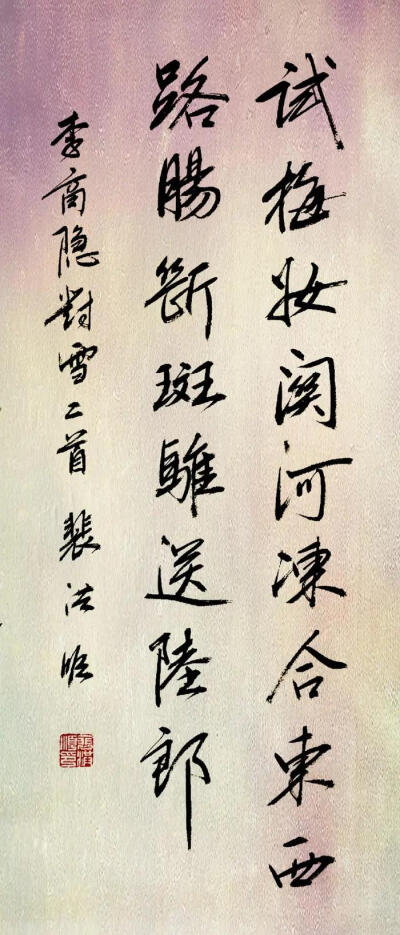 試梅妝關河凍合東西
路腸斷斑騅送陸郎
李商隐對雪二首 裴洪